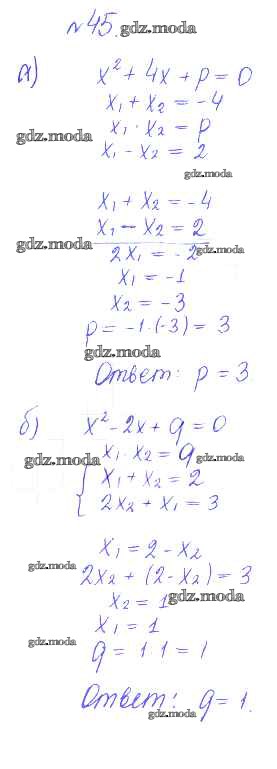 №45. gdz.moda
а) x² + 4x + p = 0
x₁ + x₂ = -4
gdz.moda x₁ · x₂ = p
x₁ - x₂ = 2
gdz.moda
x₁ + x₂ = -4
gdz.moda x₁ - x₂ = 2
2x₁ = -2 gdz.moda
x₁ = -1
x₂ = -3
p = -1·(-3) = 3
gdz.moda
Ответ: p = 3
б) x² - 2x + q = 0
gdz.moda x₁ · x₂ = q gdz.moda
x₁ + x₂ = 2
2x₂ + x₁ = 3
x₁ = 2 - x₂
gdz.moda
2x₂ + (2 - x₂) = 3
x₂ = 1 gdz.moda
x₁ = 1
gdz.moda
q = 1·1 = 1
Ответ: q = 1.
gdz.moda